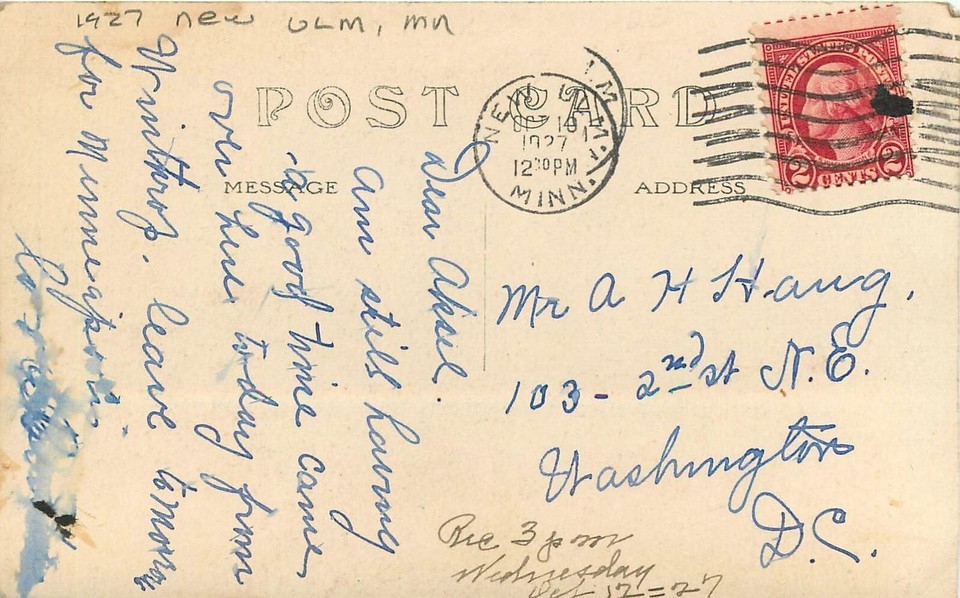 1927 New ULM, MN
POST CARD
NEW ULM
OCT 10
1927
12 30 PM
MINN.
UNITED STATES POSTAGE
2 CENTS 2
MESSAGE
ADDRESS
Dear Aksel.
Am still having
a good time came
over here today from
Winthrop. leave tomorrow
for Minneapolis.
Mr A H Haug.
103 - 2nd st N.E.
Washington
D.C.
Rec 3 pm
Wednesday
Oct 12 = 27